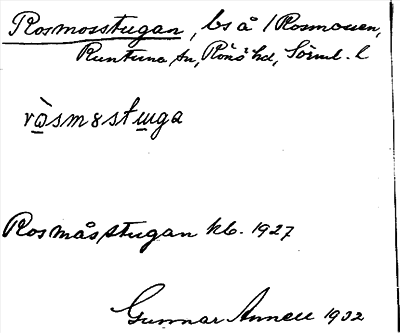 Rosmosstugan, bs å /Rosmossen,
Runtuna sn, Rönö hd, Sörml. l
Rosmåsstugan kb. 1927
Gunnar Annell 1932